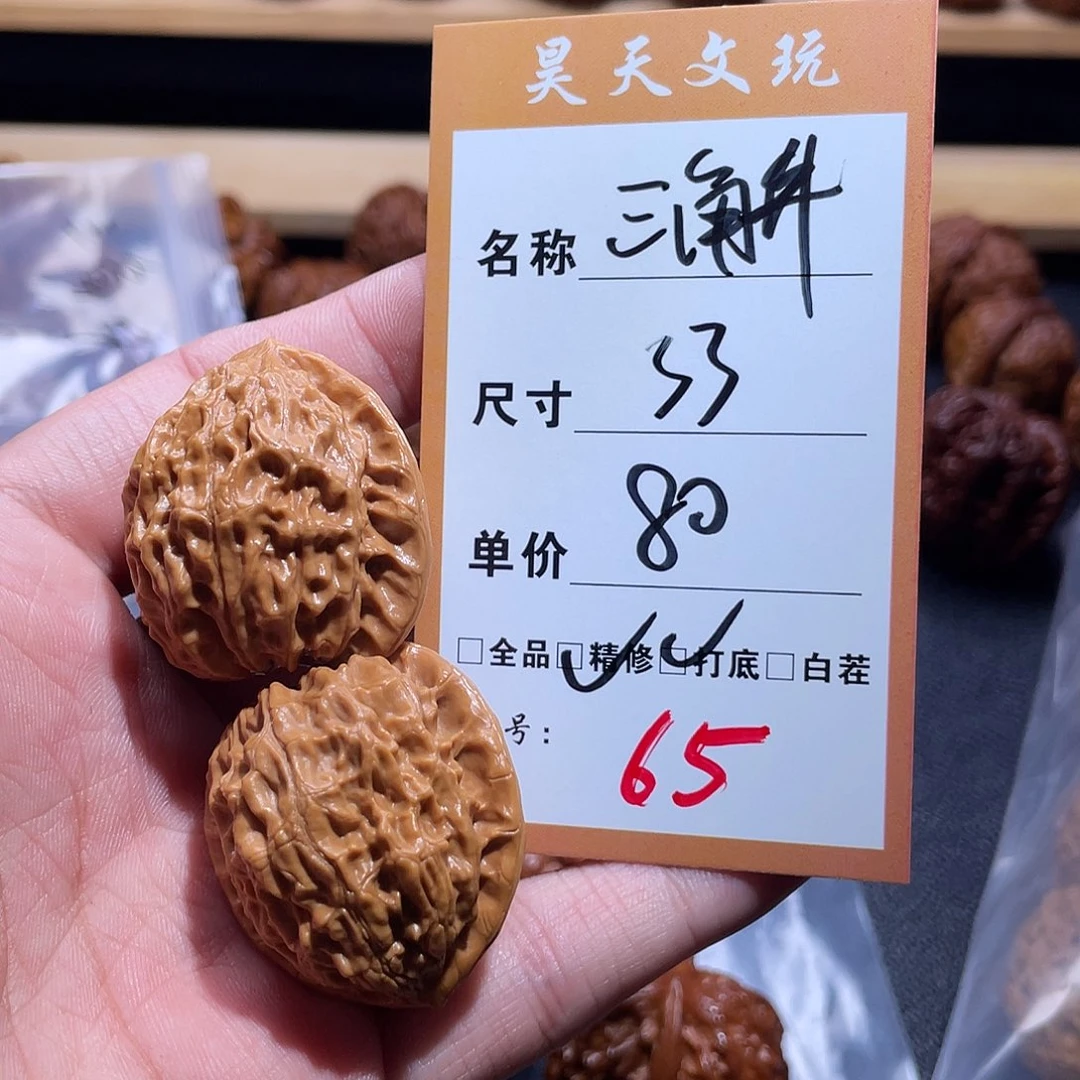 昊天文玩
名称 三角
尺寸 33
单价 80
□全品□精修□打底□白茬
号：
65